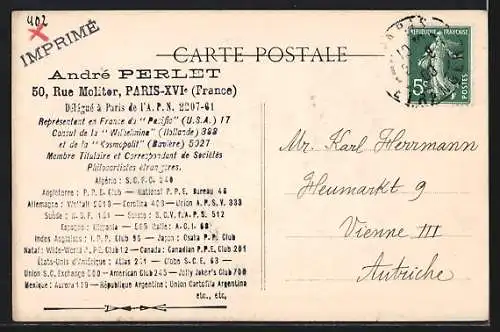 402
IMPRIMÉ
CARTE POSTALE
André PERLET
50, Rue Molitor, PARIS-XVIe (France)
Délégué à Paris de l'A.P.N. 2207-61
Représentant en France du "Pacific" (U.S.A.) 17
Consul de la "Wilhelmina" (Hollande) 399
et de la "Kosmopolit" (Bavière) 5027
Membre Titulaire et Correspondant de Sociétés
Philocartistes étrangères.
Algérie : S.C.F.C. 240
Angleterre : P.P.E. Club — National P.P.E. Bureau 46
Allemagne : Weltall 5019 — Corolina 403 — Union A.P.S.V. 333
Suède : 161 — Suisse : S.C.V. f. A.P.S. 512
Espagne : Hispania — 565 Italie : A.C.I. 60
Indes Anglaises : I.P.P. Club 95 — Japon : Osaka P.P. Club
Natal : Wilde-World P.P.E. Club 12 — Canada : Canadian P.P.E. Club 201
États-Unis d'Amérique : Atlas 251 — Globe S.C.E. 63 —
Union S.C. Exchange 500 — American Club 245 — Jolly Joker's Club 700
Mexique : Aurora 109 — République Argentine : Union Cartofila Argentina
etc., etc.
RÉPUBLIQUE FRANÇAISE
5c
POSTES
PARIS
Mr. Karl Herrmann
Heumarkt 9
Vienne III
Autriche